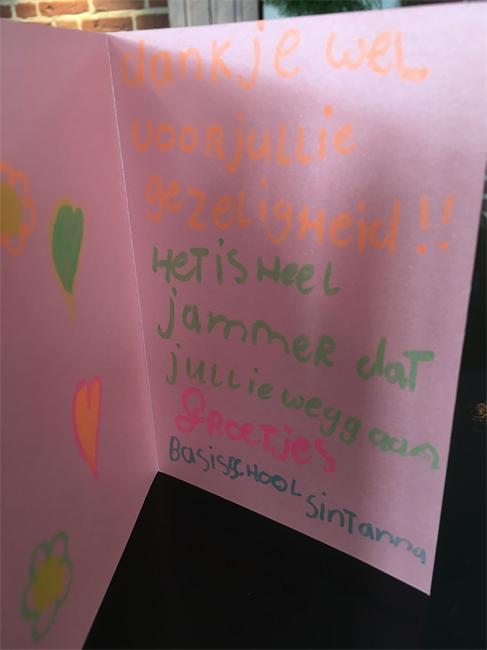 dankje wel
voor jullie
gezeligheid!!
Het is Heel
jammer dat
jullie wegg aan
Groetjes
Basisschool
Sint anna